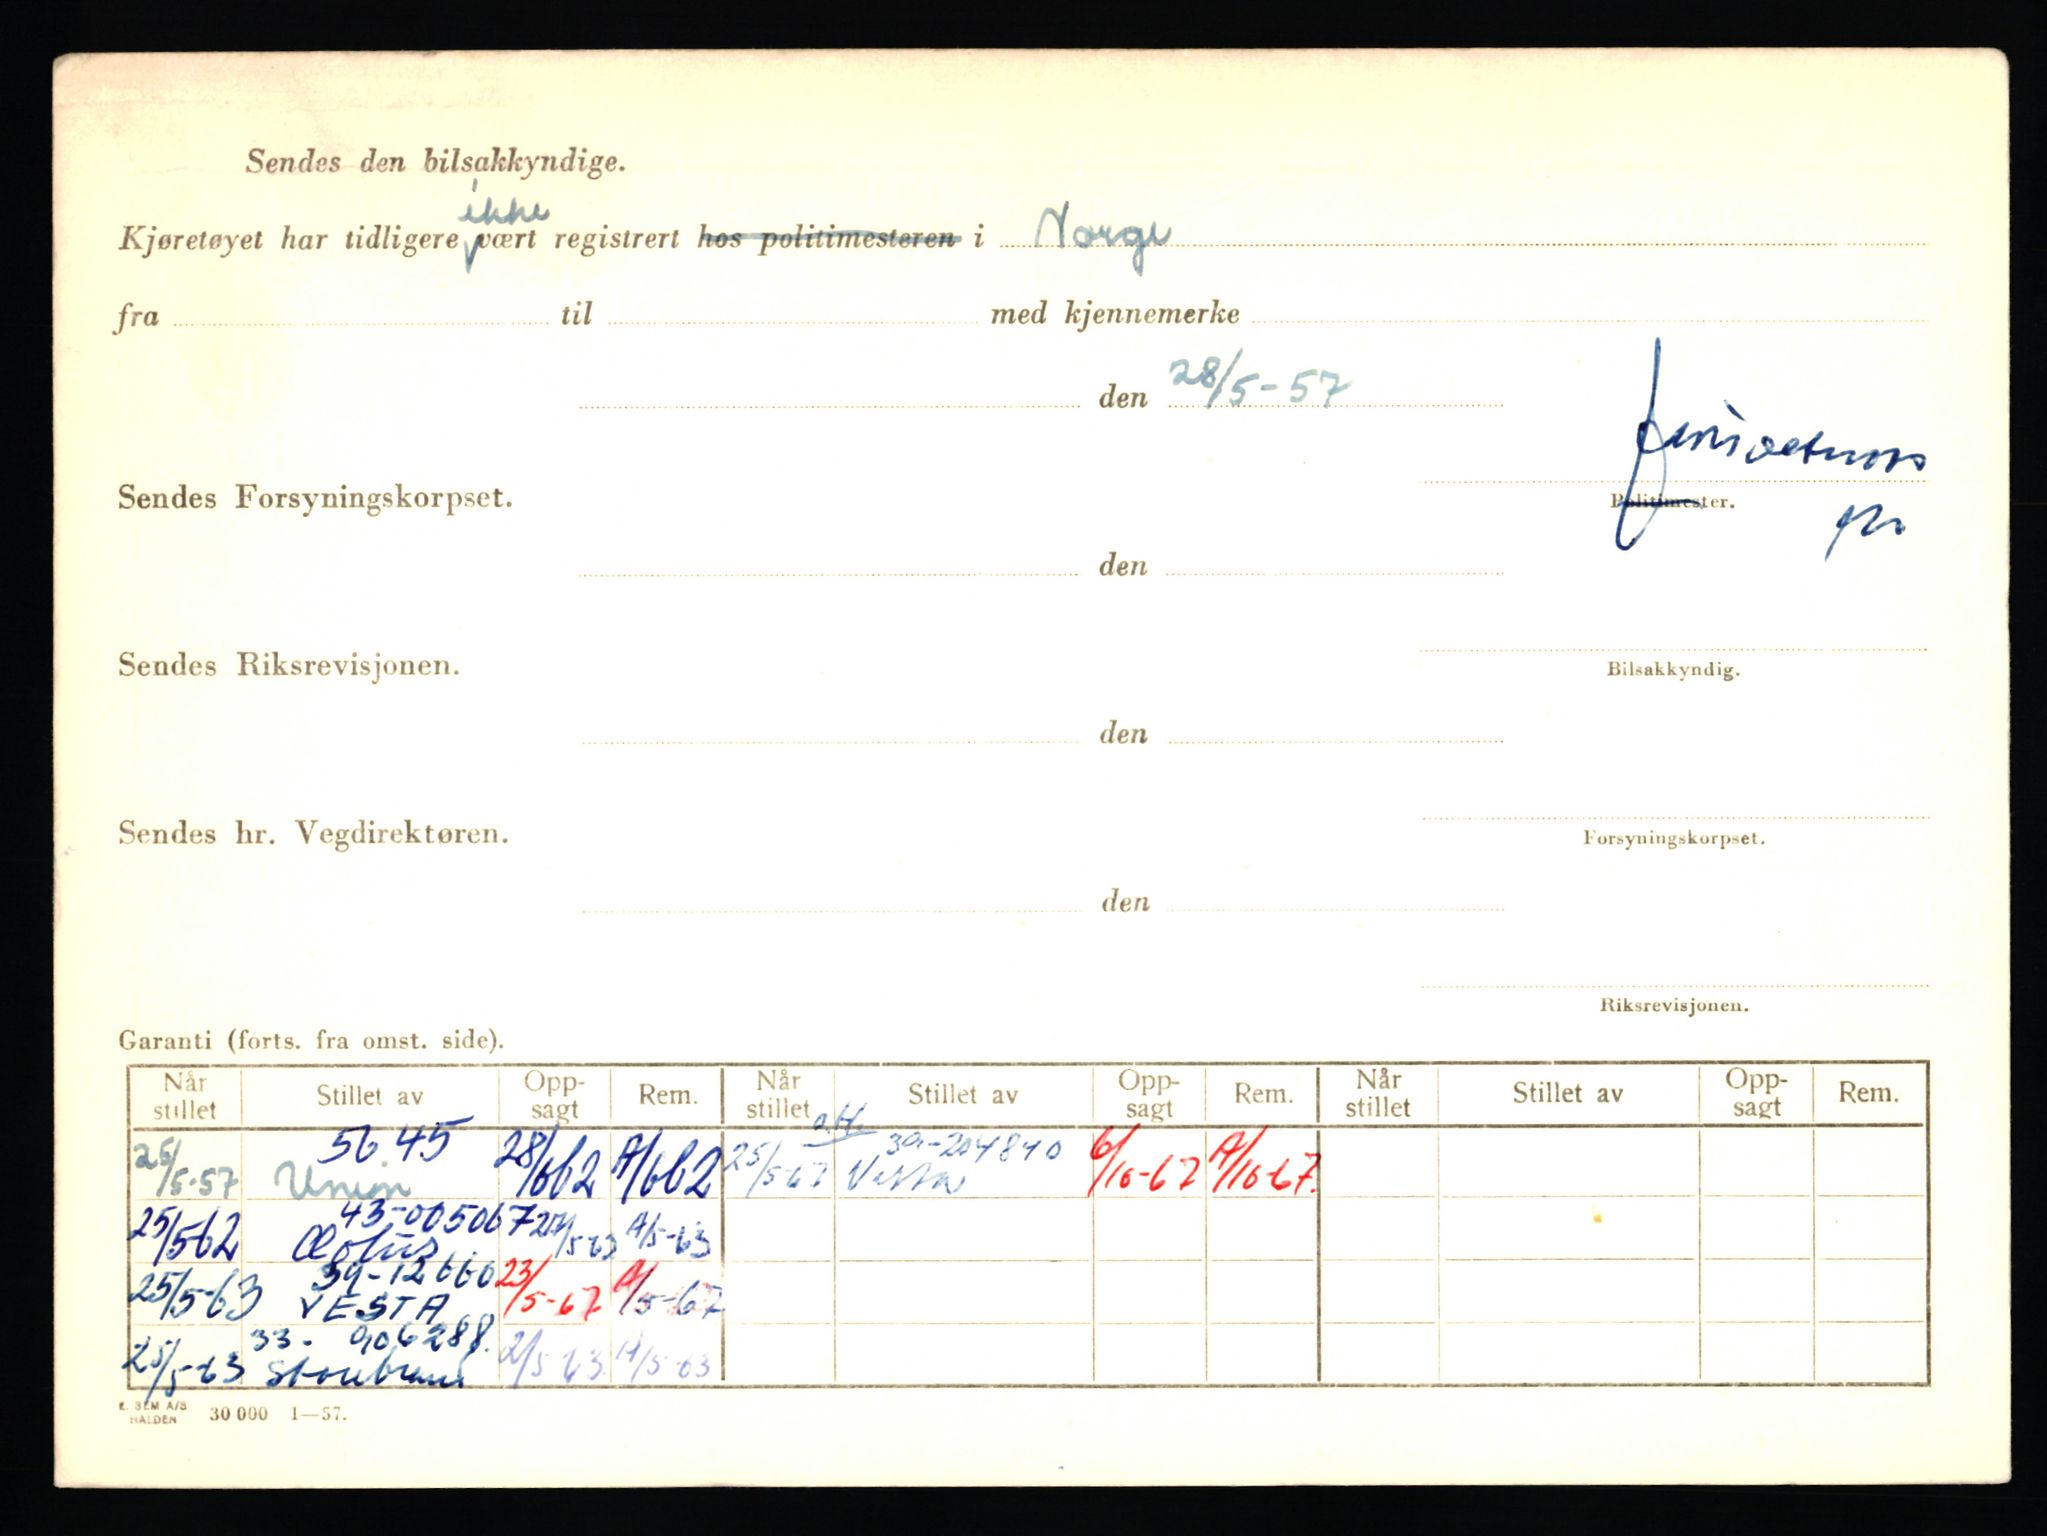 Sendes den bilsakkyndige.
ikke
Kjøretøyet har tidligere vært registrert hos politimesteren i Norge
fra til med kjennemerke
den 28/5-57
Sendes Forsyningskorpset.
Politimester.
den
Sendes Riksrevisjonen.
Bilsakkyndig.
den
Sendes hr. Vegdirektøren.
Forsyningskorpset.
den
Riksrevisjonen.
Garanti (forts. fra omst. side).
Når stillet Stillet av Opp-sagt Rem. Når stillet Stillet av Opp-sagt Rem. Når stillet Stillet av Opp-sagt Rem.
5645 39-204840
25/5-57 Union 28/662 A/662 25/5-67 Vesta 6/10-67 A/10-67.
43-005067
25/562 Æolus 27/5-63 A/5-63
39-12660
25/5-63 VESTA 23/5-67 A/5-67
33- 906288.
25/5-63 Storebrand 2/5-63. A/5-63
E. SEM A/S
HALDEN 30 000 1—57.